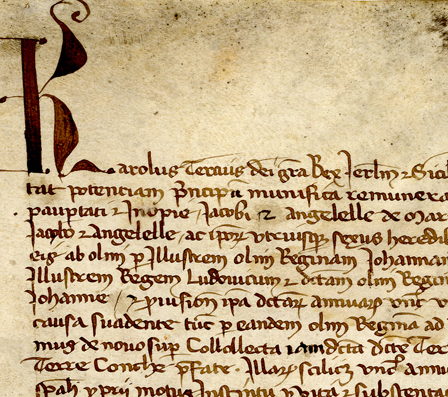 Karolus Tercius dei gra Rex Jerlm & Sicil
tat potenciam Principū munifica remunera
paupertati & Inopie Jacobi & Angelelle de Mar
Jacobo & Angelelle ac ipor utriusqr sexus heredib
eis ab olim p Illustrem olim Reginam Johannam
Illustrem Regem Ludovicum & dictam olim Regin
Johanne & provision ipa dictar annuar unc
causa suadente tuc p eandem olim Regina ad
mus de novo sup Collecta iamdicta dcte Ter
Terre Conche pfate Illar scilicz unc annu
motus Instinctu vita & substenta